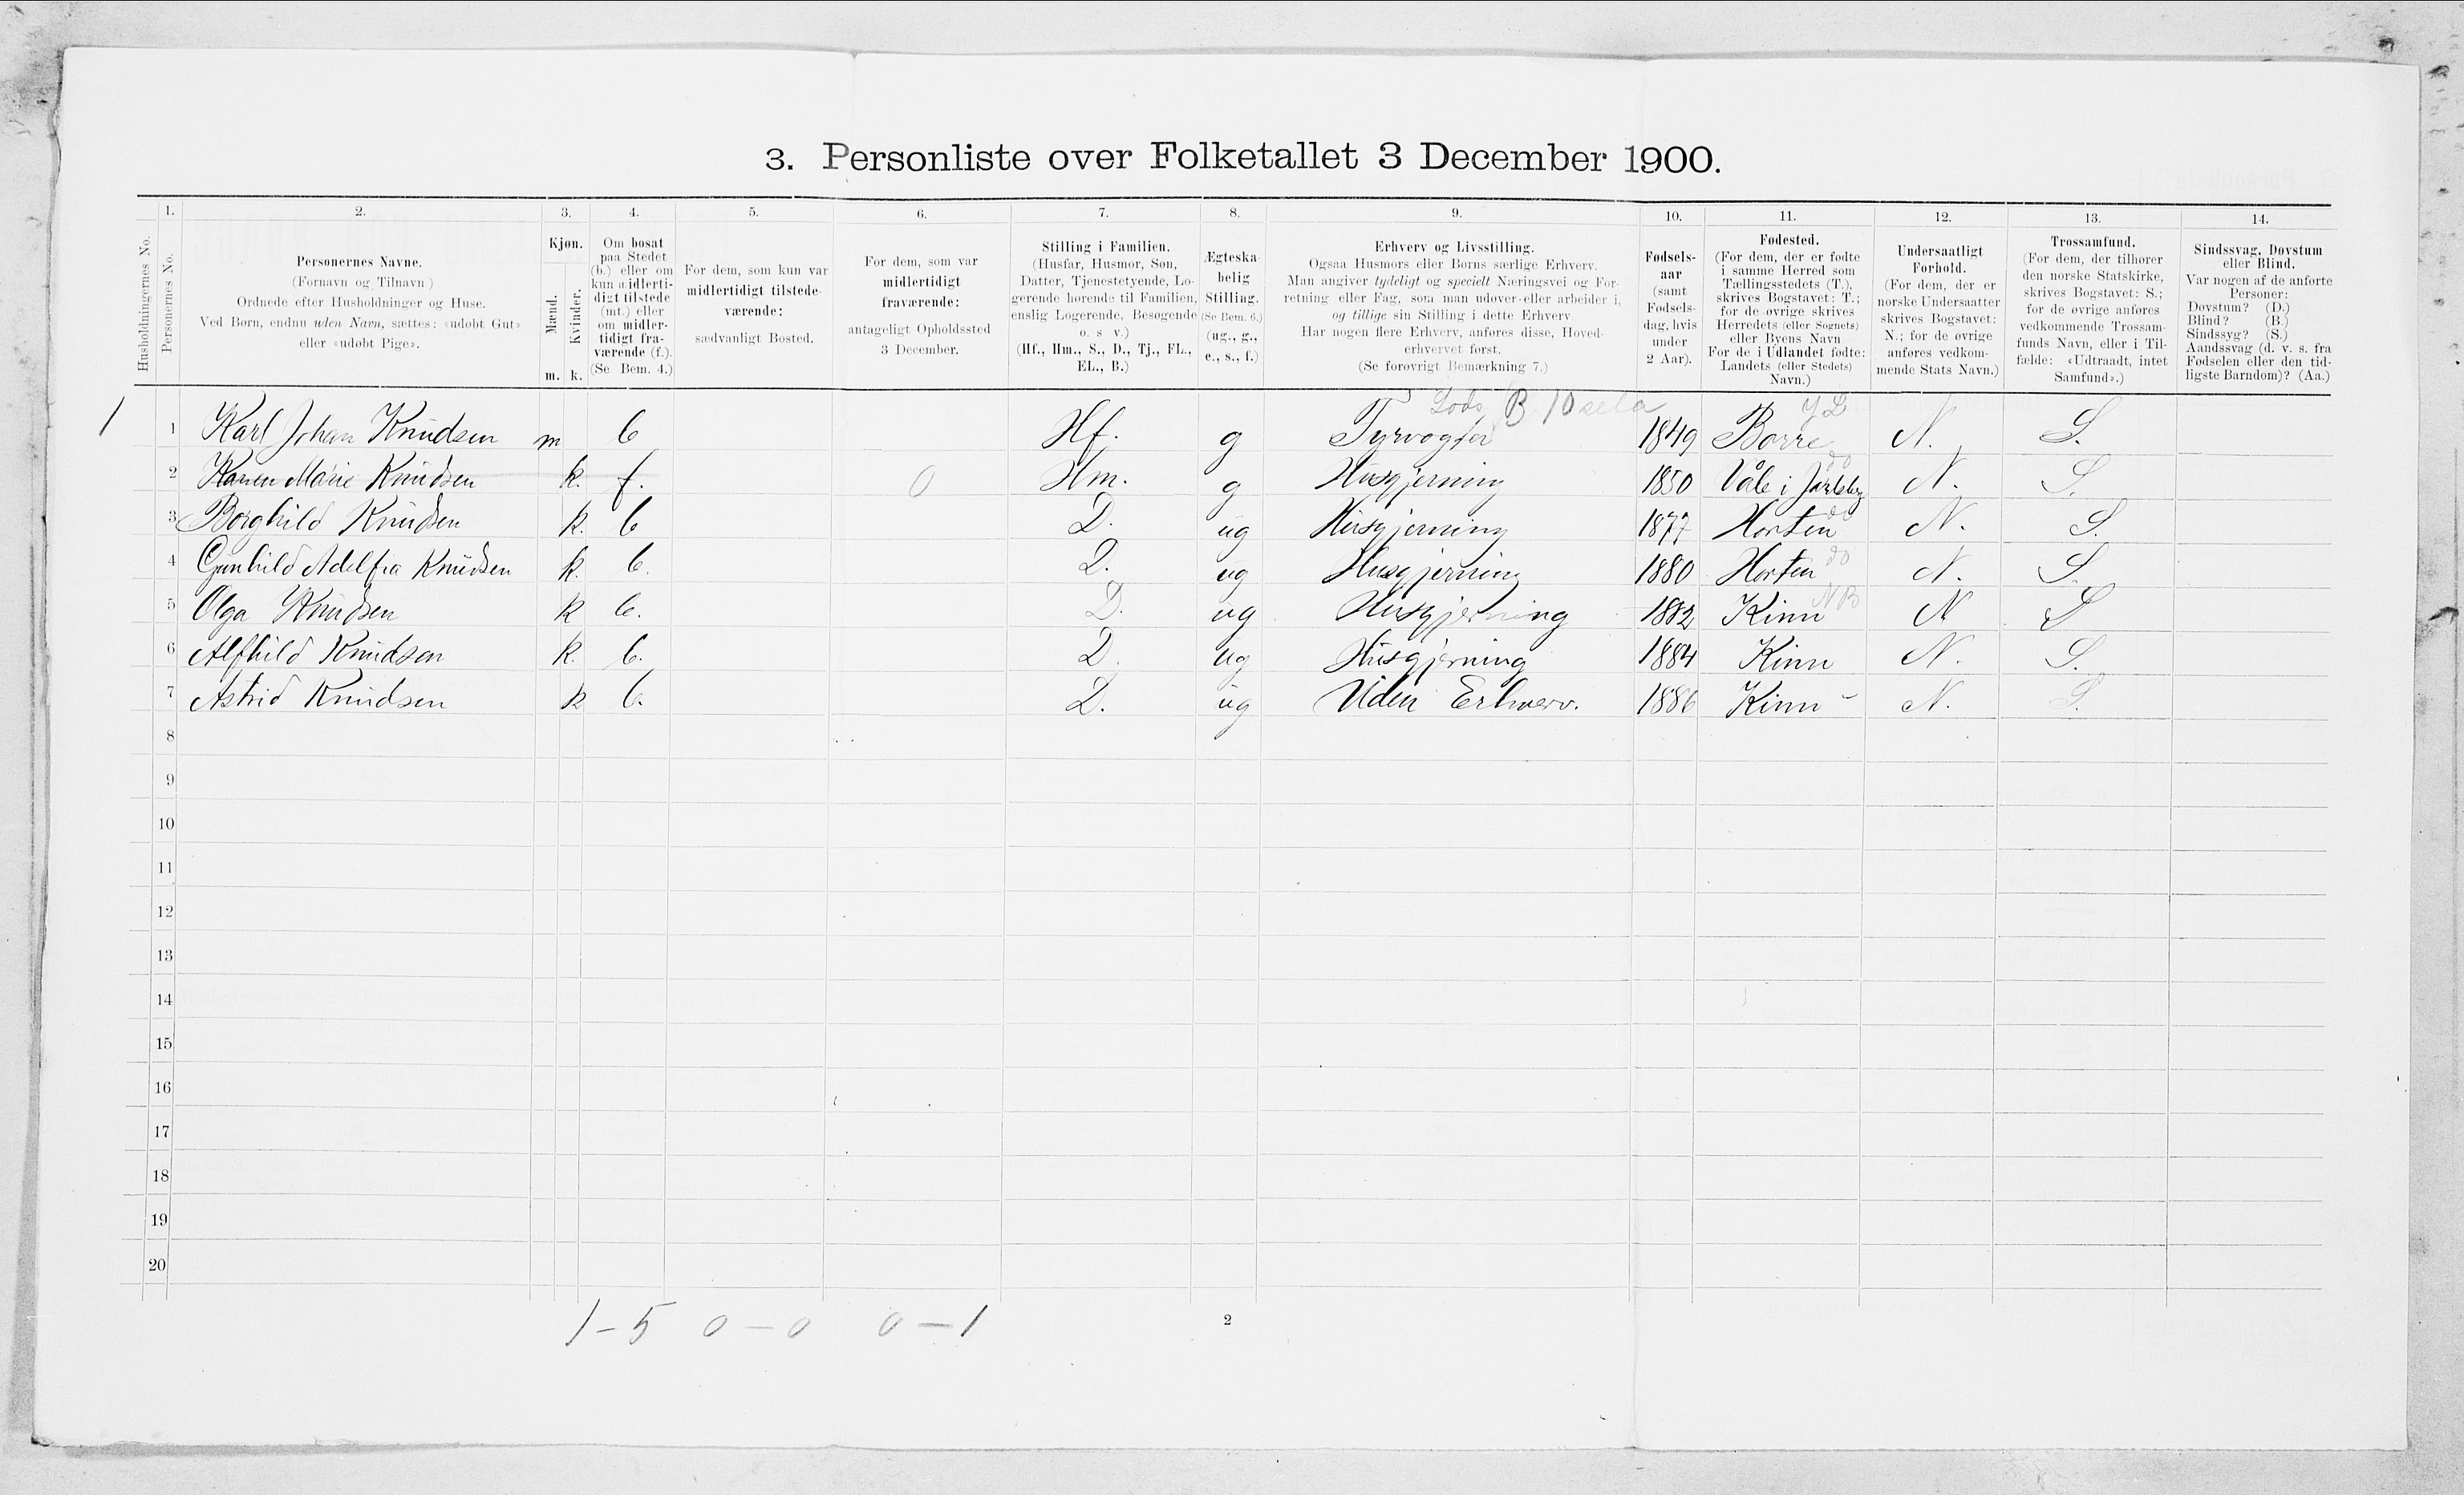 3. Personliste over Folketallet 3 December 1900.
1. 2. 3. 4. 5. 6. 7. 8. 9. 10. 11. 12. 13. 14.
Husholdningernes No.
Personernes No.
Personernes Navne.
(Fornavn og Tilnavn)
Ordnede efter Husholdninger og Huse.
Ved Børn, endnu uden Navn, sættes: «udøbt Gut»
eller «udøbt Pige».
Kjøn.
Mænd.
Kvinder.
m. k.
Om bosat
paa Stedet
(b.) eller om
kun midlerti-
digt tilstede
(mt.) eller
om midler-
tidigt fra-
værende (f.).
(Se Bem. 4.)
For dem, som kun var
midlertidigt tilstede-
værende:
sædvanligt Bosted.
For dem, som var
midlertidigt
fraværende:
antageligt Opholdssted
3 December.
Stilling i Familien.
(Husfar, Husmor, Søn,
Datter, Tjenestetyende, Lo-
gerende hørende til Familien,
enslig Logerende, Besøgende
o. s v.)
(Hf., Hm., S., D., Tj., FL.,
EL., B.)
Ægteska-
belig
Stilling.
(Se Bem. 6.)
(ug., g.,
e., s., f.)
Erhverv og Livsstilling.
Ogsaa Husmors eller Børns særlige Erhverv.
Man angiver tydeligt og specielt Næringsvei og For-
retning eller Fag, som man udøver eller arbeider i,
og tillige sin Stilling i dette Erhverv.
Har nogen flere Erhverv, anføres disse, Hoved-
erhvervet først.
(Se forøvrigt Bemærkning 7.)
Fødsels-
aar
(samt
Fødsels-
dag, hvis
under
2 Aar).
Fødested.
(For dem, der er fødte
i samme Herred som
Tællingsstedets (T.),
skrives Bogstavet: T.;
for de øvrige skrives
Herredets (eller Sognets)
eller Byens Navn
For de i Udlandet fødte:
Landets (eller Stedets)
Navn.)
Undersaatligt
Forhold.
(For dem, der er
norske Undersaatter
skrives Bogstavet:
N.; for de øvrige
anføres vedkom-
mende Stats Navn.)
Trossamfund.
(For dem, der tilhører
den norske Statskirke,
skrives Bogstavet: S.;
for de øvrige anføres
vedkommende Trossam-
funds Navn, eller i Til-
fælde: «Udtraadt, intet
Samfund».)
Sindssvag, Døvstum
eller Blind.
Var nogen af de anførte
Personer:
Døvstum? (D.)
Blind? (B.)
Sindssyg? (S.)
Aandssvag (d. v. s. fra
Fødselen eller den tid-
ligste Barndom)? (Aa.)
Lods B 10
1 1 Karl Johan Knudsen m b Hf. g Fyrvogter 1849 Borre N. S.
2 Karen Marie Knudsen k. f. 0 Hm. g Husgjerning 1850 Våle i Jarlsberg do N. S.
3 Borghild Knudsen k. b D. ug Husgjerning 1877 Horten do N. S.
4 Gunhild Adelfia Knudsen k. b. D. ug Husgjerning 1880 Horten do N. S.
5 Olga Knudsen k b. D. ug Husgjerning 1882 Kinn NB N S
6 Alfhild Knudsen k. b. D. ug Husgjerning 1884 Kinn N. S.
7 Astrid Knudsen k b. D. ug Uden Erhverv. 1886 Kinn - N. S.
8
9
10
11
12
13
14
15
16
17
18
19
20
1-5 0-0 0-1
2